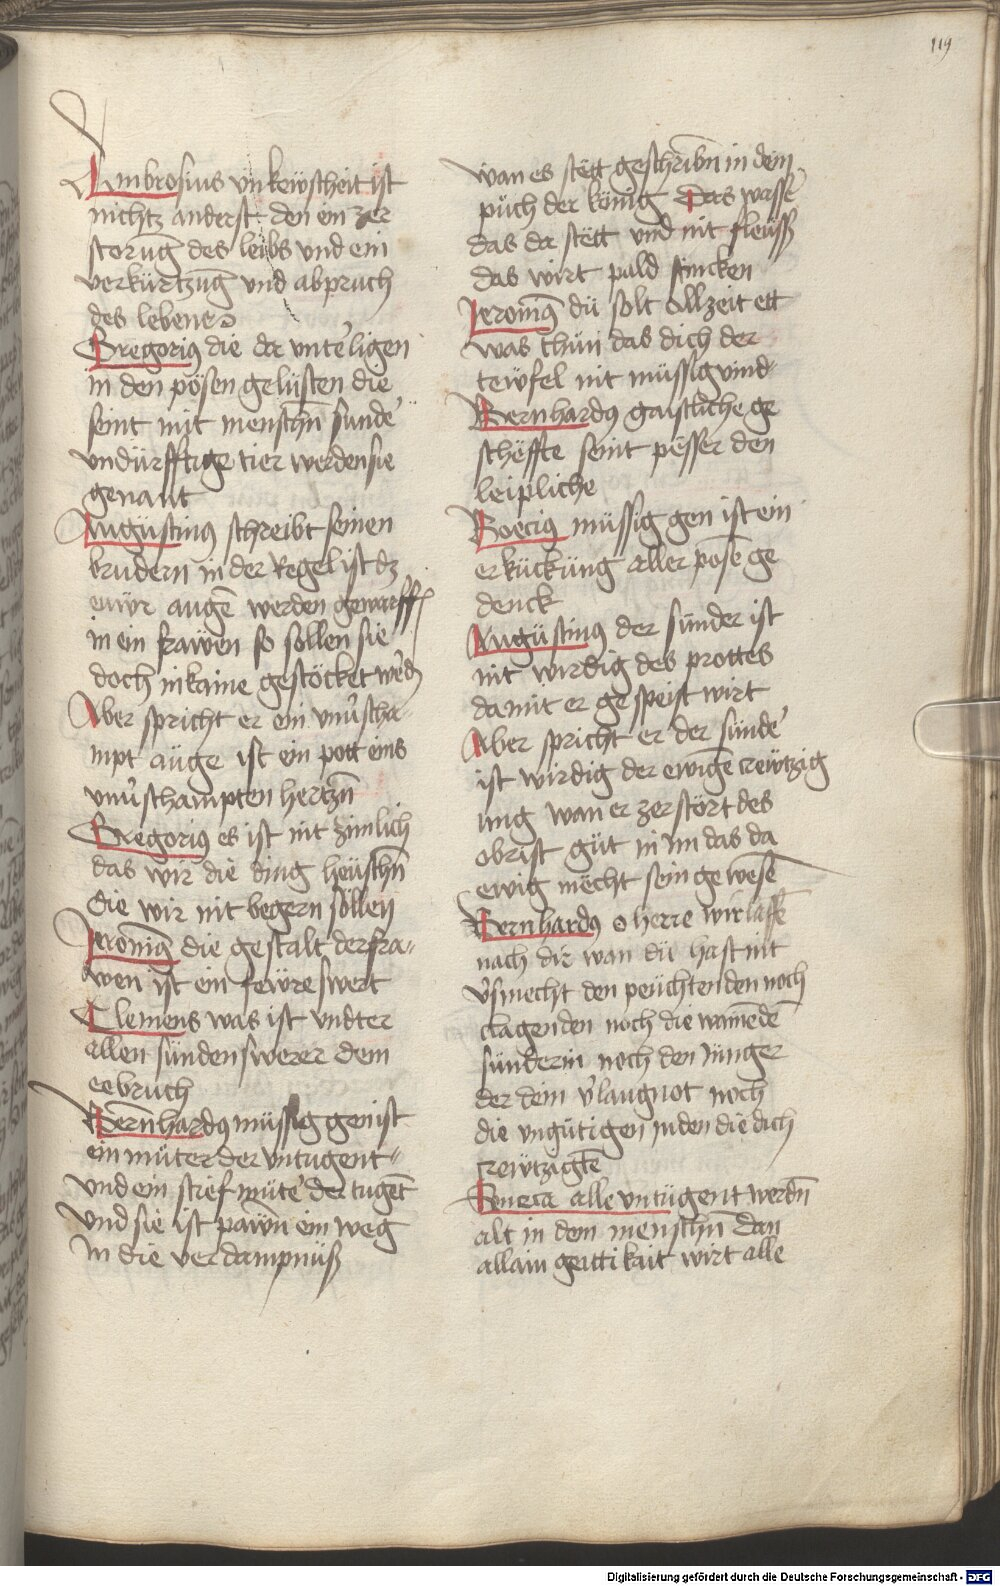 119
Ambrosius vnkewscheit ist
nichtz anderst den ein zer
storūg des leibs vnd ein
verkürtzūg vnd abpruch
des lebens
Gregorius die da vnteligen
in den pösen gelüsten die
seint nit menschn̄ sunde᾽
vndürfftige tier werden sie
genant
Augüstinus schreibt seinen
brudern in der Regel ist dz
ewr augē werden geworffē
in ein frawen so sollen sie
doch in kaine gestöcket wēdn
Aber spricht er ein vnūscha-
mpt auge ist ein pott eins
vnūschampten hertzn̄
Gregorius es ist nit zimlich
das wir die ding heüschn̄
die wir nit begern söllen
Jeronim9 die gestalt der fra-
wen ist ein fewre swert
Clemens was ist vndter
allen sünden swerer dem
eebruch
Bernhardus müssig gen ist
ein müter der vntugent
vnd ein stief müte᾽ der tugēt
vnd sie ist pawn̄ ein weg
in die verdampnüß
wan es stett geschribn̄ in dem
püch der künig Das wasse᾽
das da stett vnd nit fleüsß
das wirt pald stincken
Jeronim9 dü solt allzeit ett
was thün das dich der
tewfel nit müssig vind
Bernhardus gaistliche ge
scheffte seint pesser den
leipliche
Boecius müssig gen ist ein
erkückung aller pösē ge
denck
Augüstinus der sünder ist
nit wirdig des prottes
damit er gespeist wirt
Aber spricht er der sünde᾽
ist wirdig der ewigē crewtzig
ung wan er zerstört des
obrist güt in im das da
ewig mecht sein gewesē
Bernhardus o herre wir lauffē
nach dir wan dü hast nit
v᾽smecht den peüchtenden noch
clagenden noch die wainēdē
sünderin noch den Jünger
der dein v᾽laugnot noch
die vngütigen Juden die dich
crewtzigtē
Seneca alle vntügent werdn̄
alt in dem menschn̄ dan
allain geittikait wirt alle
Digitalisierung gefördert durch die Deutsche Forschungsgemeinschaft - DFG